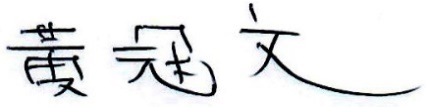 黃冠文